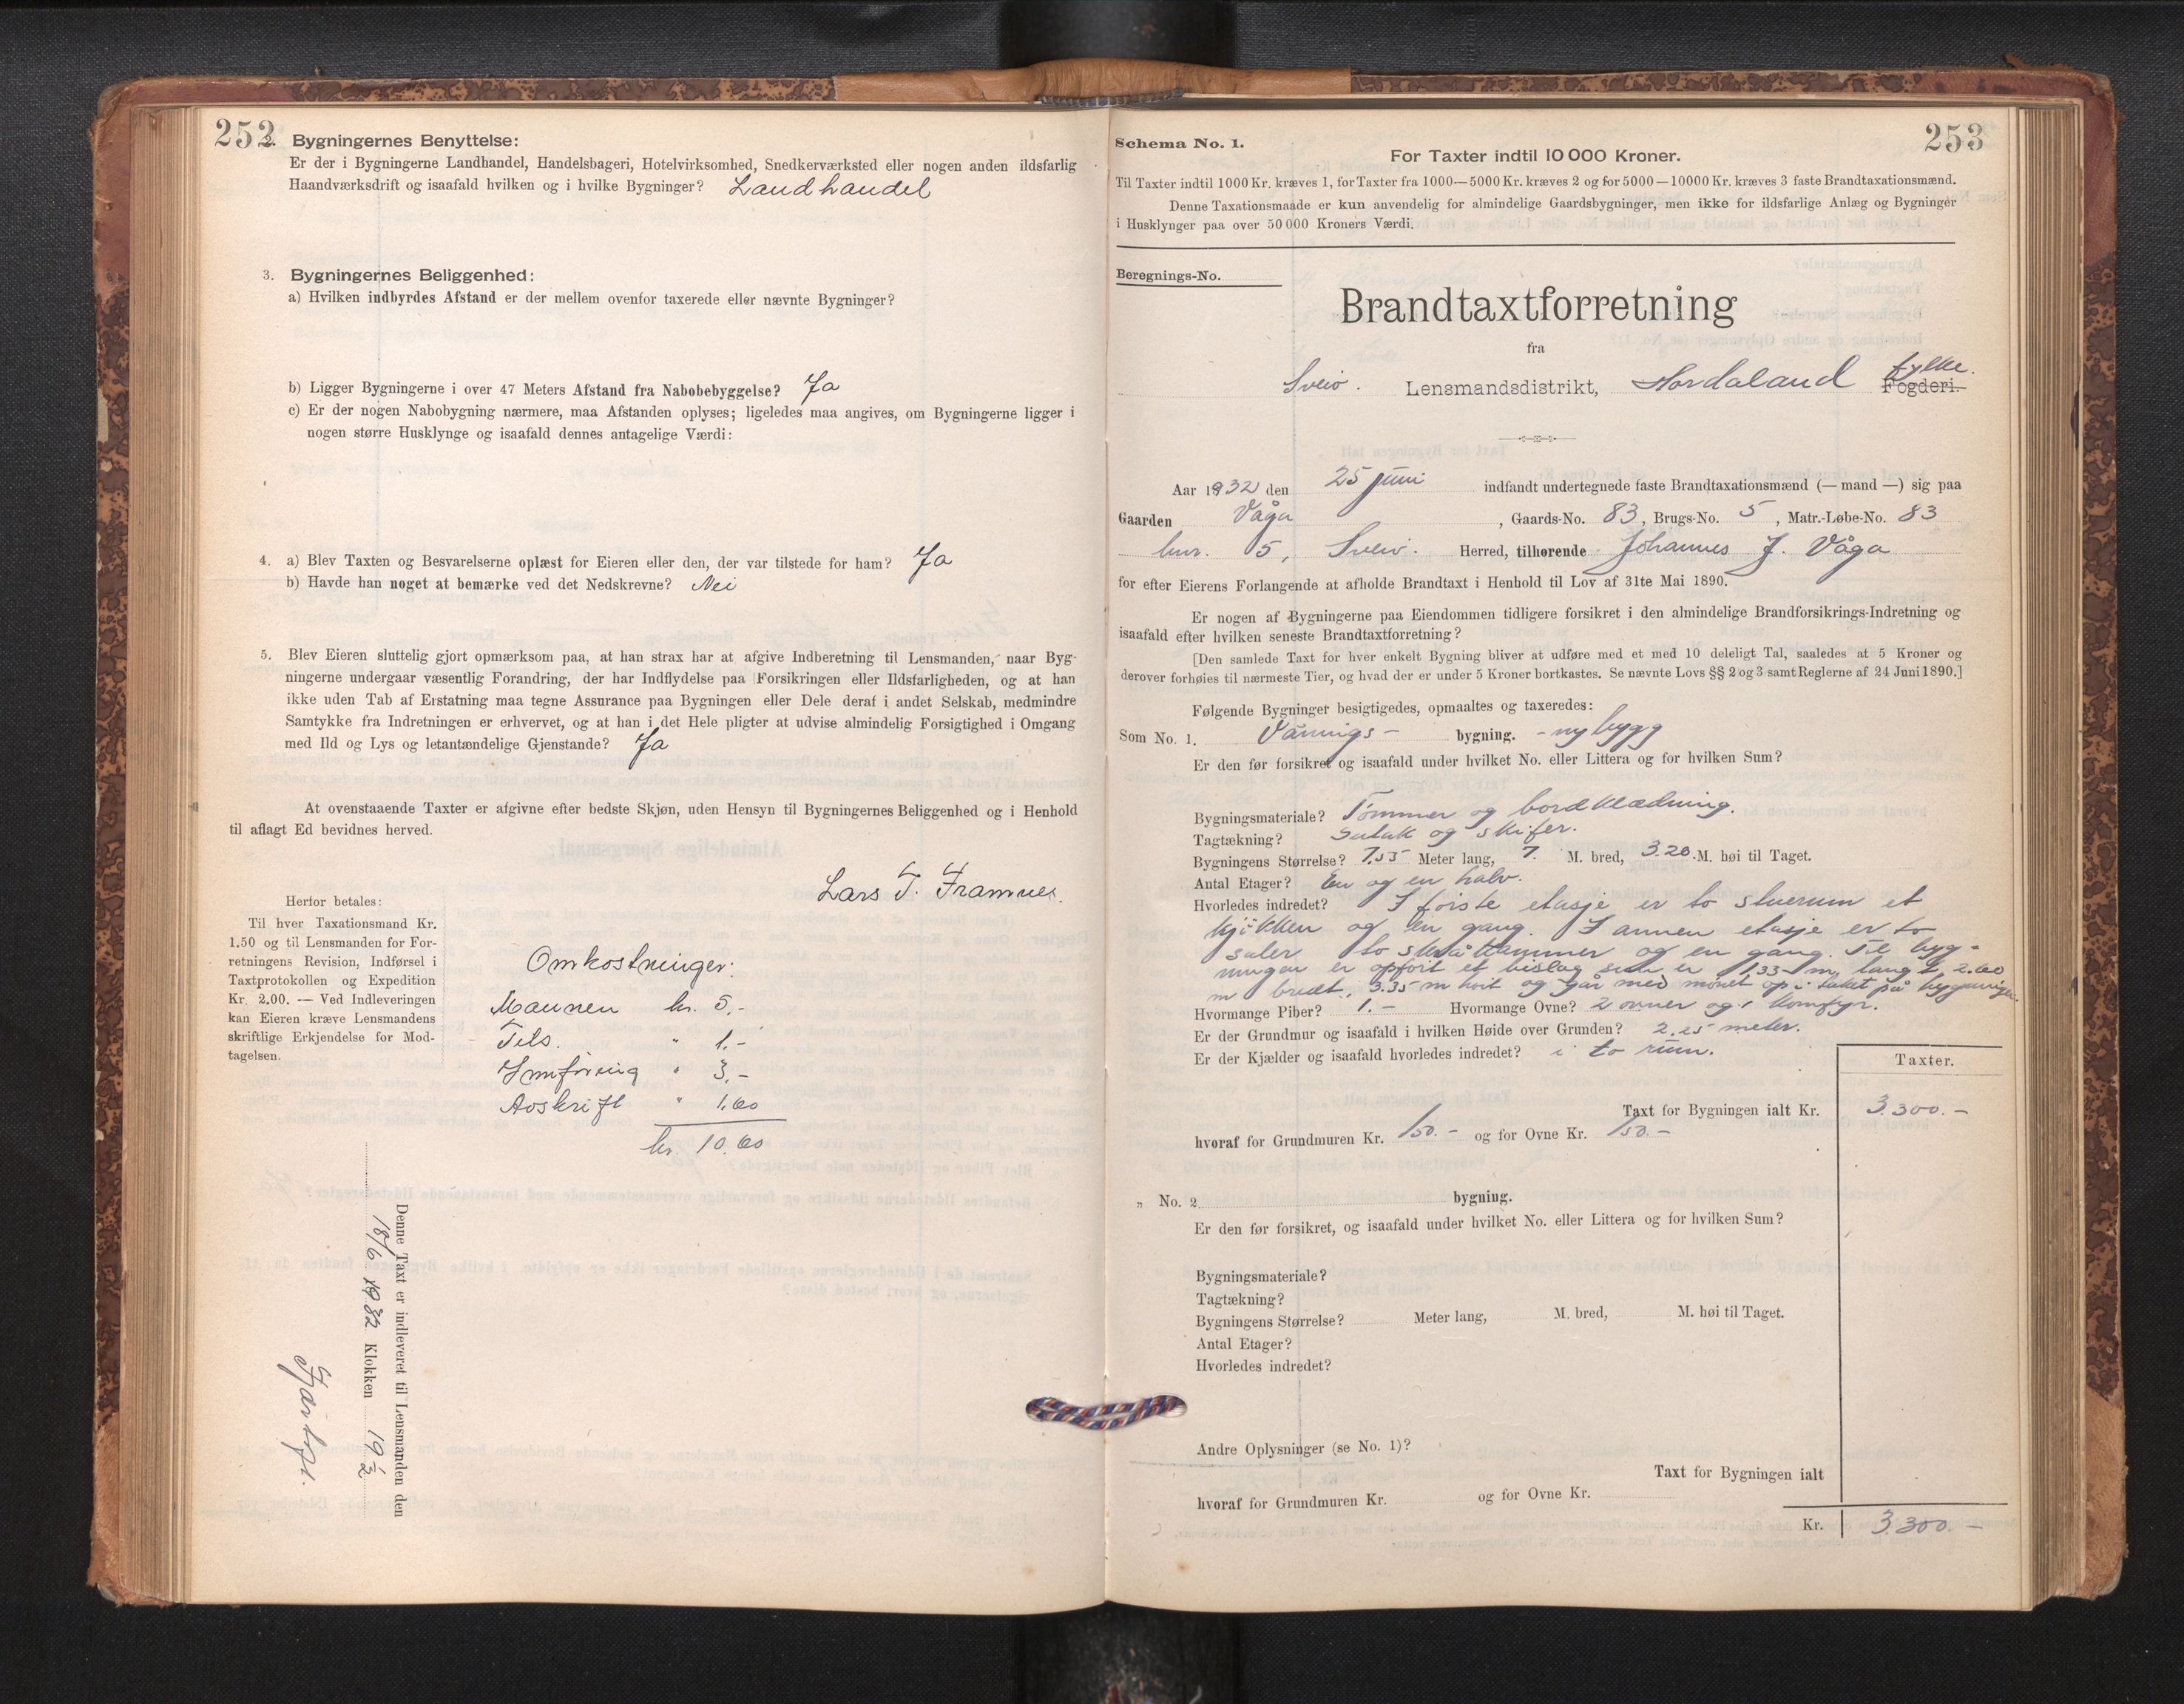 252
2. Bygningernes Benyttelse:
Er der i Bygningerne Landhandel, Handelsbageri, Hotelvirksomhed, Snedkerværksted eller nogen anden ildsfarlig
Haandværksdrift og isaafald hvilken og i hvilke Bygninger? Landhandel
3. Bygningernes Beliggenhed:
a) Hvilken indbyrdes Afstand er der mellem ovenfor taxerede eller nævnte Bygninger?
b) Ligger Bygningerne i over 47 Meters Afstand fra Nabobebyggelse? Ja
c) Er der nogen Nabobygning nærmere, maa Afstanden oplyses; ligeledes maa angives, om Bygningerne ligger i
nogen større Husklynge og isaafald dennes antagelige Værdi:
4. a) Blev Taxten og Besvarelserne oplæst for Eieren eller den, der var tilstede for ham? Ja
b) Havde han noget at bemærke ved det Nedskrevne? Nei
5. Blev Eieren sluttelig gjort opmærksom paa, at han strax har at afgive Indberetning til Lensmanden, naar Byg-
ningerne undergaar væsentlig Forandring, der har Indflydelse paa Forsikringen eller Ildsfarligheden, og at han
ikke uden Tab af Erstatning maa tegne Assurance paa Bygningen eller Dele deraf i andet Selskab, medmindre
Samtykke fra Indretningen er erhvervet, og at han i det Hele pligter at udvise almindelig Forsigtighed i Omgang
med Ild og Lys og letantændelige Gjenstande? Ja
At ovenstaaende Taxter er afgivne efter bedste Skjøn, uden Hensyn til Bygningernes Beliggenhed og i Henhold
til aflagt Ed bevidnes herved.
Lars T. Framnes.
Herfor betales:
Til hver Taxationsmand Kr.
1,50 og til Lensmanden for For-
retningens Revision, Indførsel i
Taxtprotokollen og Expedition
Kr. 2,00. — Ved Indleveringen
kan Eieren kræve Lensmandens
skriftlige Erkjendelse for Mod-
tagelsen.
Omkostninger:
Mannen kr. 5,-
Tils. " 1.-
Innføring " 3,-
Avskrift " 1.60
kr. 10.60
Denne Taxt er indleveret til Lensmanden den
18/6 1932 Klokken 19 1/2
253
Schema No. 1.
For Taxter indtil 10 000 Kroner.
Til Taxter indtil 1000 Kr. kræves 1, for Taxter fra 1000—5000 Kr. kræves 2 og for 5000—10000 Kr. kræves 3 faste Brandtaxationsmænd.
Denne Taxationsmaade er kun anvendelig for almindelige Gaardsbygninger, men ikke for ildsfarlige Anlæg og Bygninger
i Husklynger paa over 50 000 Kroners Værdi.
Beregnings-No.
Brandtaxtforretning
fra
Sveio. Lensmandsdistrikt, Hordaland Fogderi. fylke.
Aar 1932 den 25 juni indfandt undertegnede faste Brandtaxationsmænd (— mand —) sig paa
Gaarden Våga, Gaards-No. 83, Brugs-No. 5, Matr.-Løbe-No. 83
bnr. 5, Sveio. Herred, tilhørende Johannes J. Våga
for efter Eierens Forlangende at afholde Brandtaxt i Henhold til Lov af 31te Mai 1890.
Er nogen af Bygningerne paa Eiendommen tidligere forsikret i den almindelige Brandforsikrings-Indretning og
isaafald efter hvilken seneste Brandtaxtforretning?
[Den samlede Taxt for hver enkelt Bygning bliver at udføre med et med 10 deleligt Tal, saaledes at 5 Kroner og
derover forhøies til nærmeste Tier, og hvad der er under 5 Kroner bortkastes. Se nævnte Lovs §§ 2 og 3 samt Reglerne af 24 Juni 1890.]
Følgende Bygninger besigtigedes, opmaaltes og taxeredes:
Som No. 1. Vånings- bygning. - nybygg
Er den før forsikret og isaafald under hvilket No. eller Littera og for hvilken Sum?
Bygningsmateriale? Tømmer og bordklædning.
Tagtækning? sutak og skifer.
Bygningens Størrelse? 7,55 Meter lang, 7. M. bred, 3.20 M. høi til Taget.
Antal Etager? En og en halv.
Hvorledes indredet? I første etasje er to stuerum et
kjøkken og en gang. I annen etasje er to
saler to skråkammer og en gang. Til byg-
ningen er opført et bislag som er 1,35 m. langt, 2.60
m bredt, 3.35 m høit og går med mønet op i taket på bygningen.
Hvormange Piber? 1.- Hvormange Ovne? 2 ovner og 1 komfyr.
Er der Grundmur og isaafald i hvilken Høide over Grunden? 2.25 meter.
Er der Kjælder og isaafald hvorledes indredet? i to rum.
Taxter.
Taxt for Bygningen ialt Kr. 3.300.-
hvoraf for Grundmuren Kr. 150.- og for Ovne Kr. 150.-
„ No. 2 bygning.
Er den før forsikret, og isaafald under hvilket No. eller Littera og for hvilken Sum?
Bygningsmateriale?
Tagtækning?
Bygningens Størrelse? Meter lang, M. bred, M. høi til Taget.
Antal Etager?
Hvorledes indredet?
Andre Oplysninger (se No. 1)?
Taxt for Bygningen ialt
hvoraf for Grundmuren Kr. og for Ovne Kr.
Kr. 3.300.-